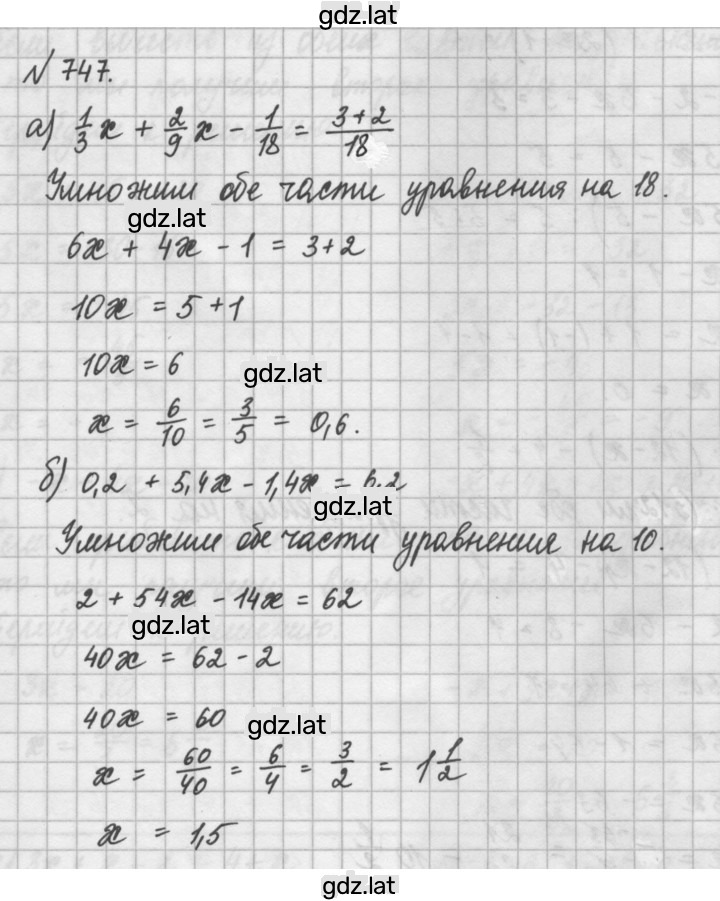 gdz.lat
N 747.
а) 1/3 x + 2/9 x - 1/18 = (3+2)/18
Умножим обе части уравнения на 18.
gdz.lat
6x + 4x - 1 = 3+2
10x = 5 + 1
10x = 6
gdz.lat
x = 6/10 = 3/5 = 0,6.
б) 0,2 + 5,4x - 1,4x = 6,2
gdz.lat
Умножим обе части уравнения на 10.
2 + 54x - 14x = 62
gdz.lat
40x = 62 - 2
40x = 60
gdz.lat
x = 60/40 = 6/4 = 3/2 = 1 1/2
x = 1,5
gdz.lat